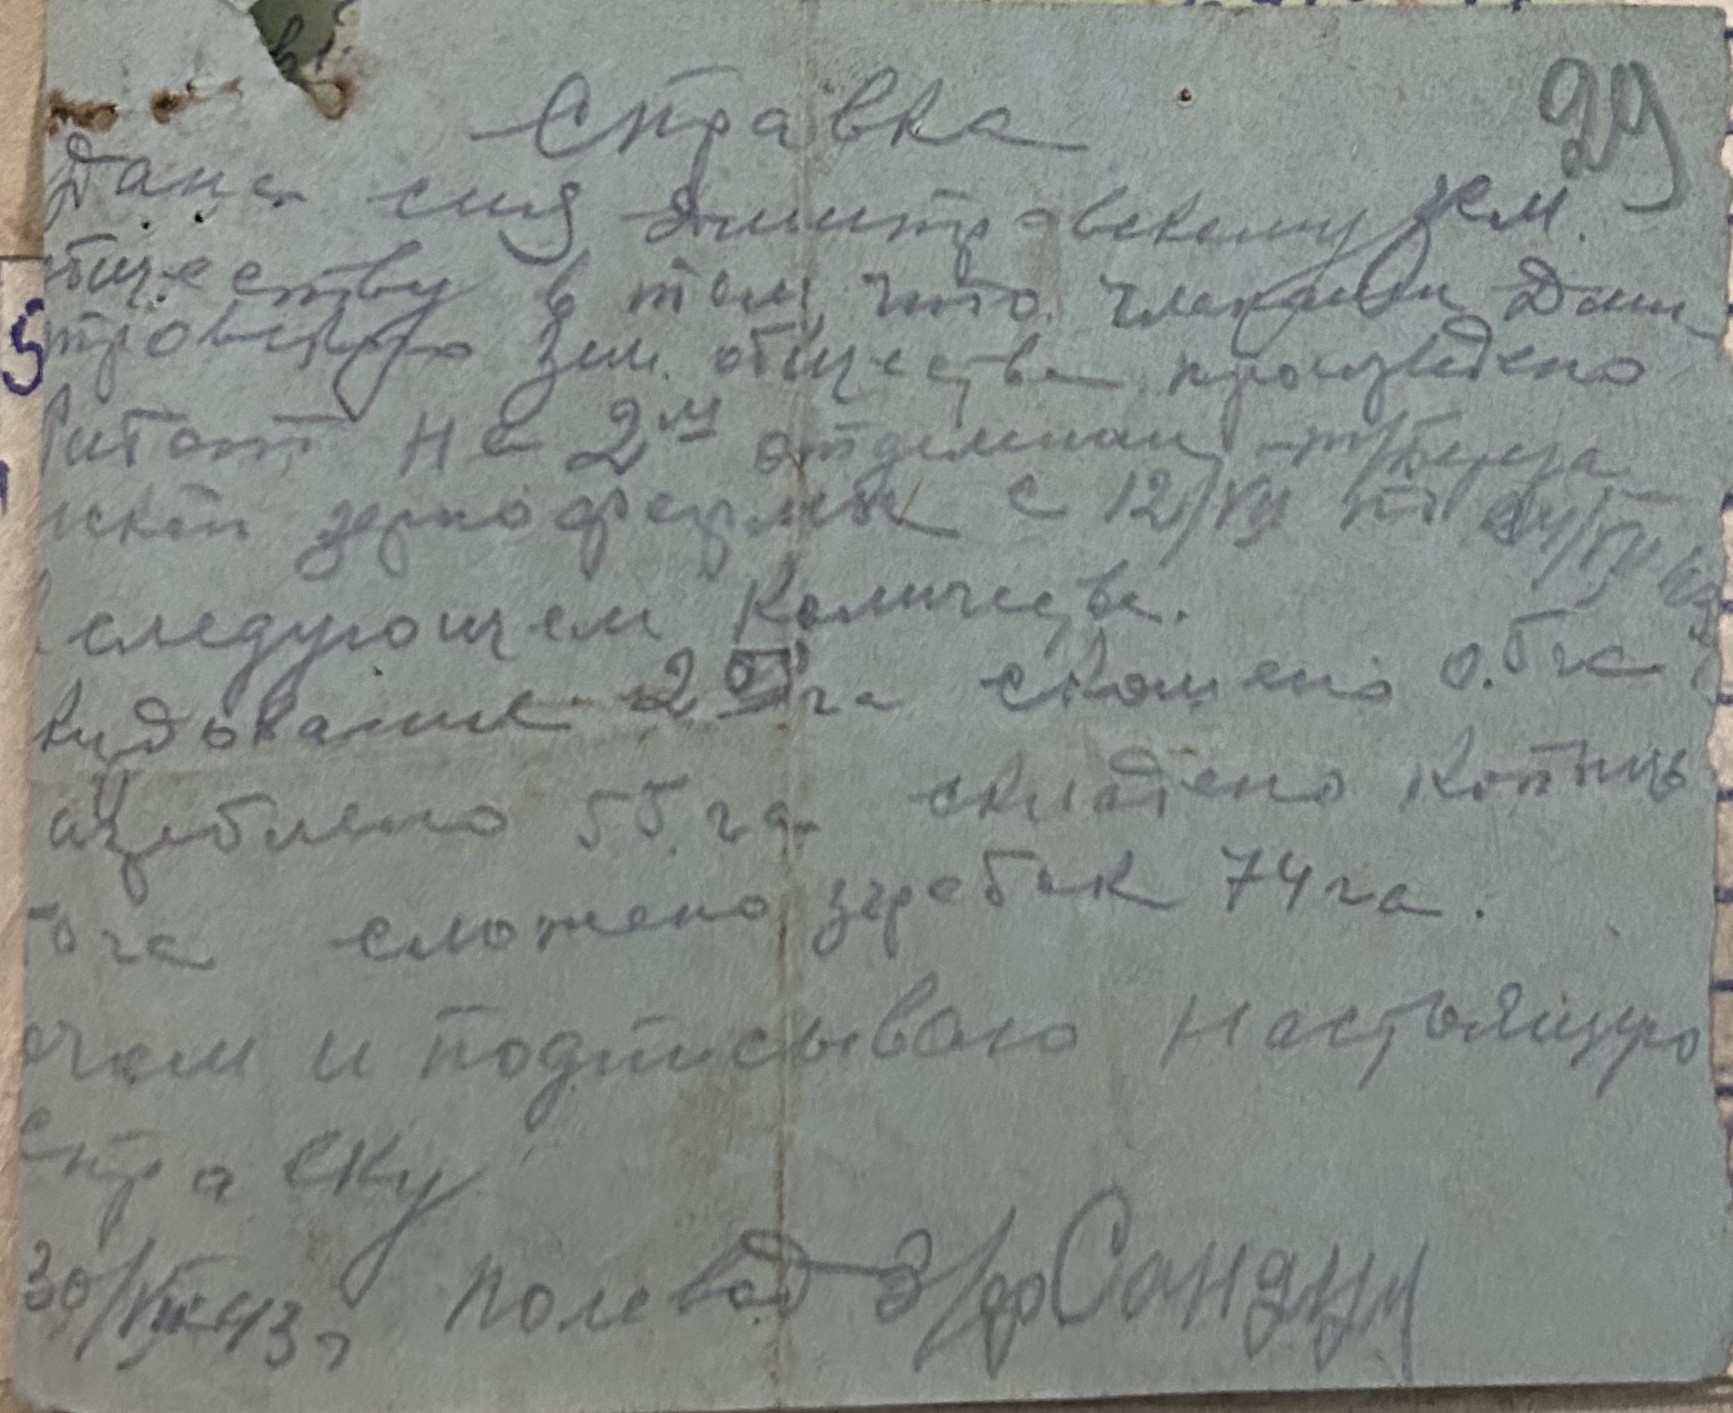 29
Справка
Дана сия Дмитровскому зем.
обществу в том, что членами Дми-
тровского зем. общества произведено
работ на 2м отделении
ской зернофермы с 12/VII по
следующем количестве.
кудование 2 га скошено 0.5 га
55 га складено копны
га сложено згребок 74 га.
о чем и подписываю настоящую
справку
30/VIII 43 г полевод з/ф Сандул